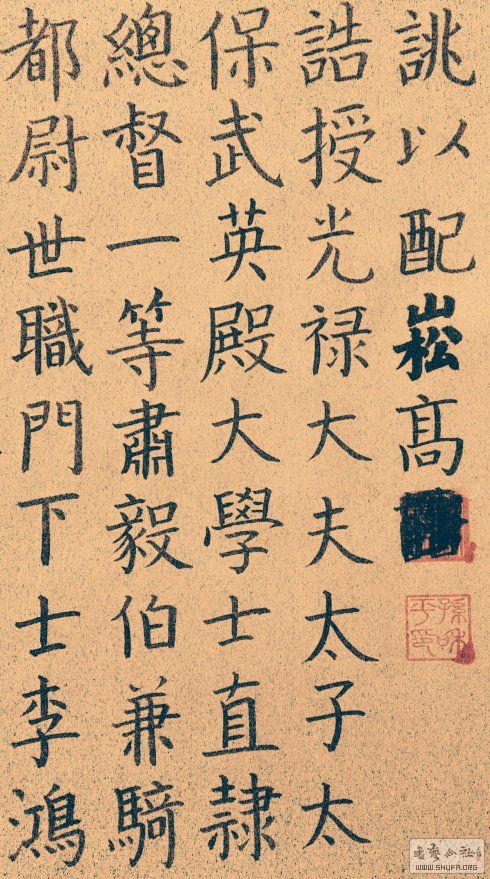 誂以配崧髙
誥授光禄大夫太子太
保武英殿大學士直隸
總督一等肅毅伯兼騎
都尉世職門下士李鴻
WWW.SHUFA.ORG